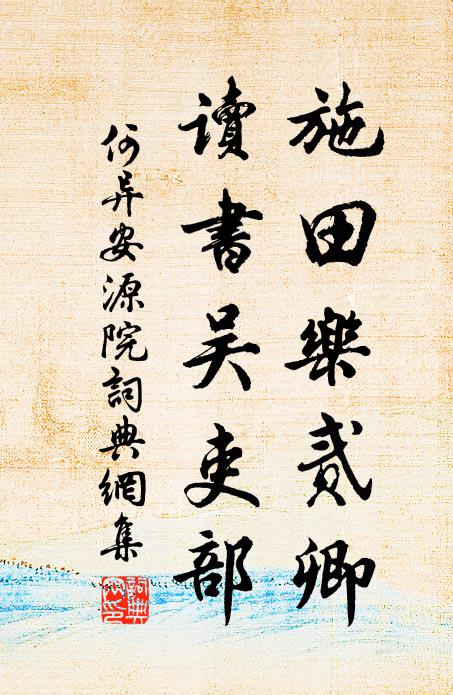 施田樂貳卿
讀書吴吏部
何异安源院詞典網集